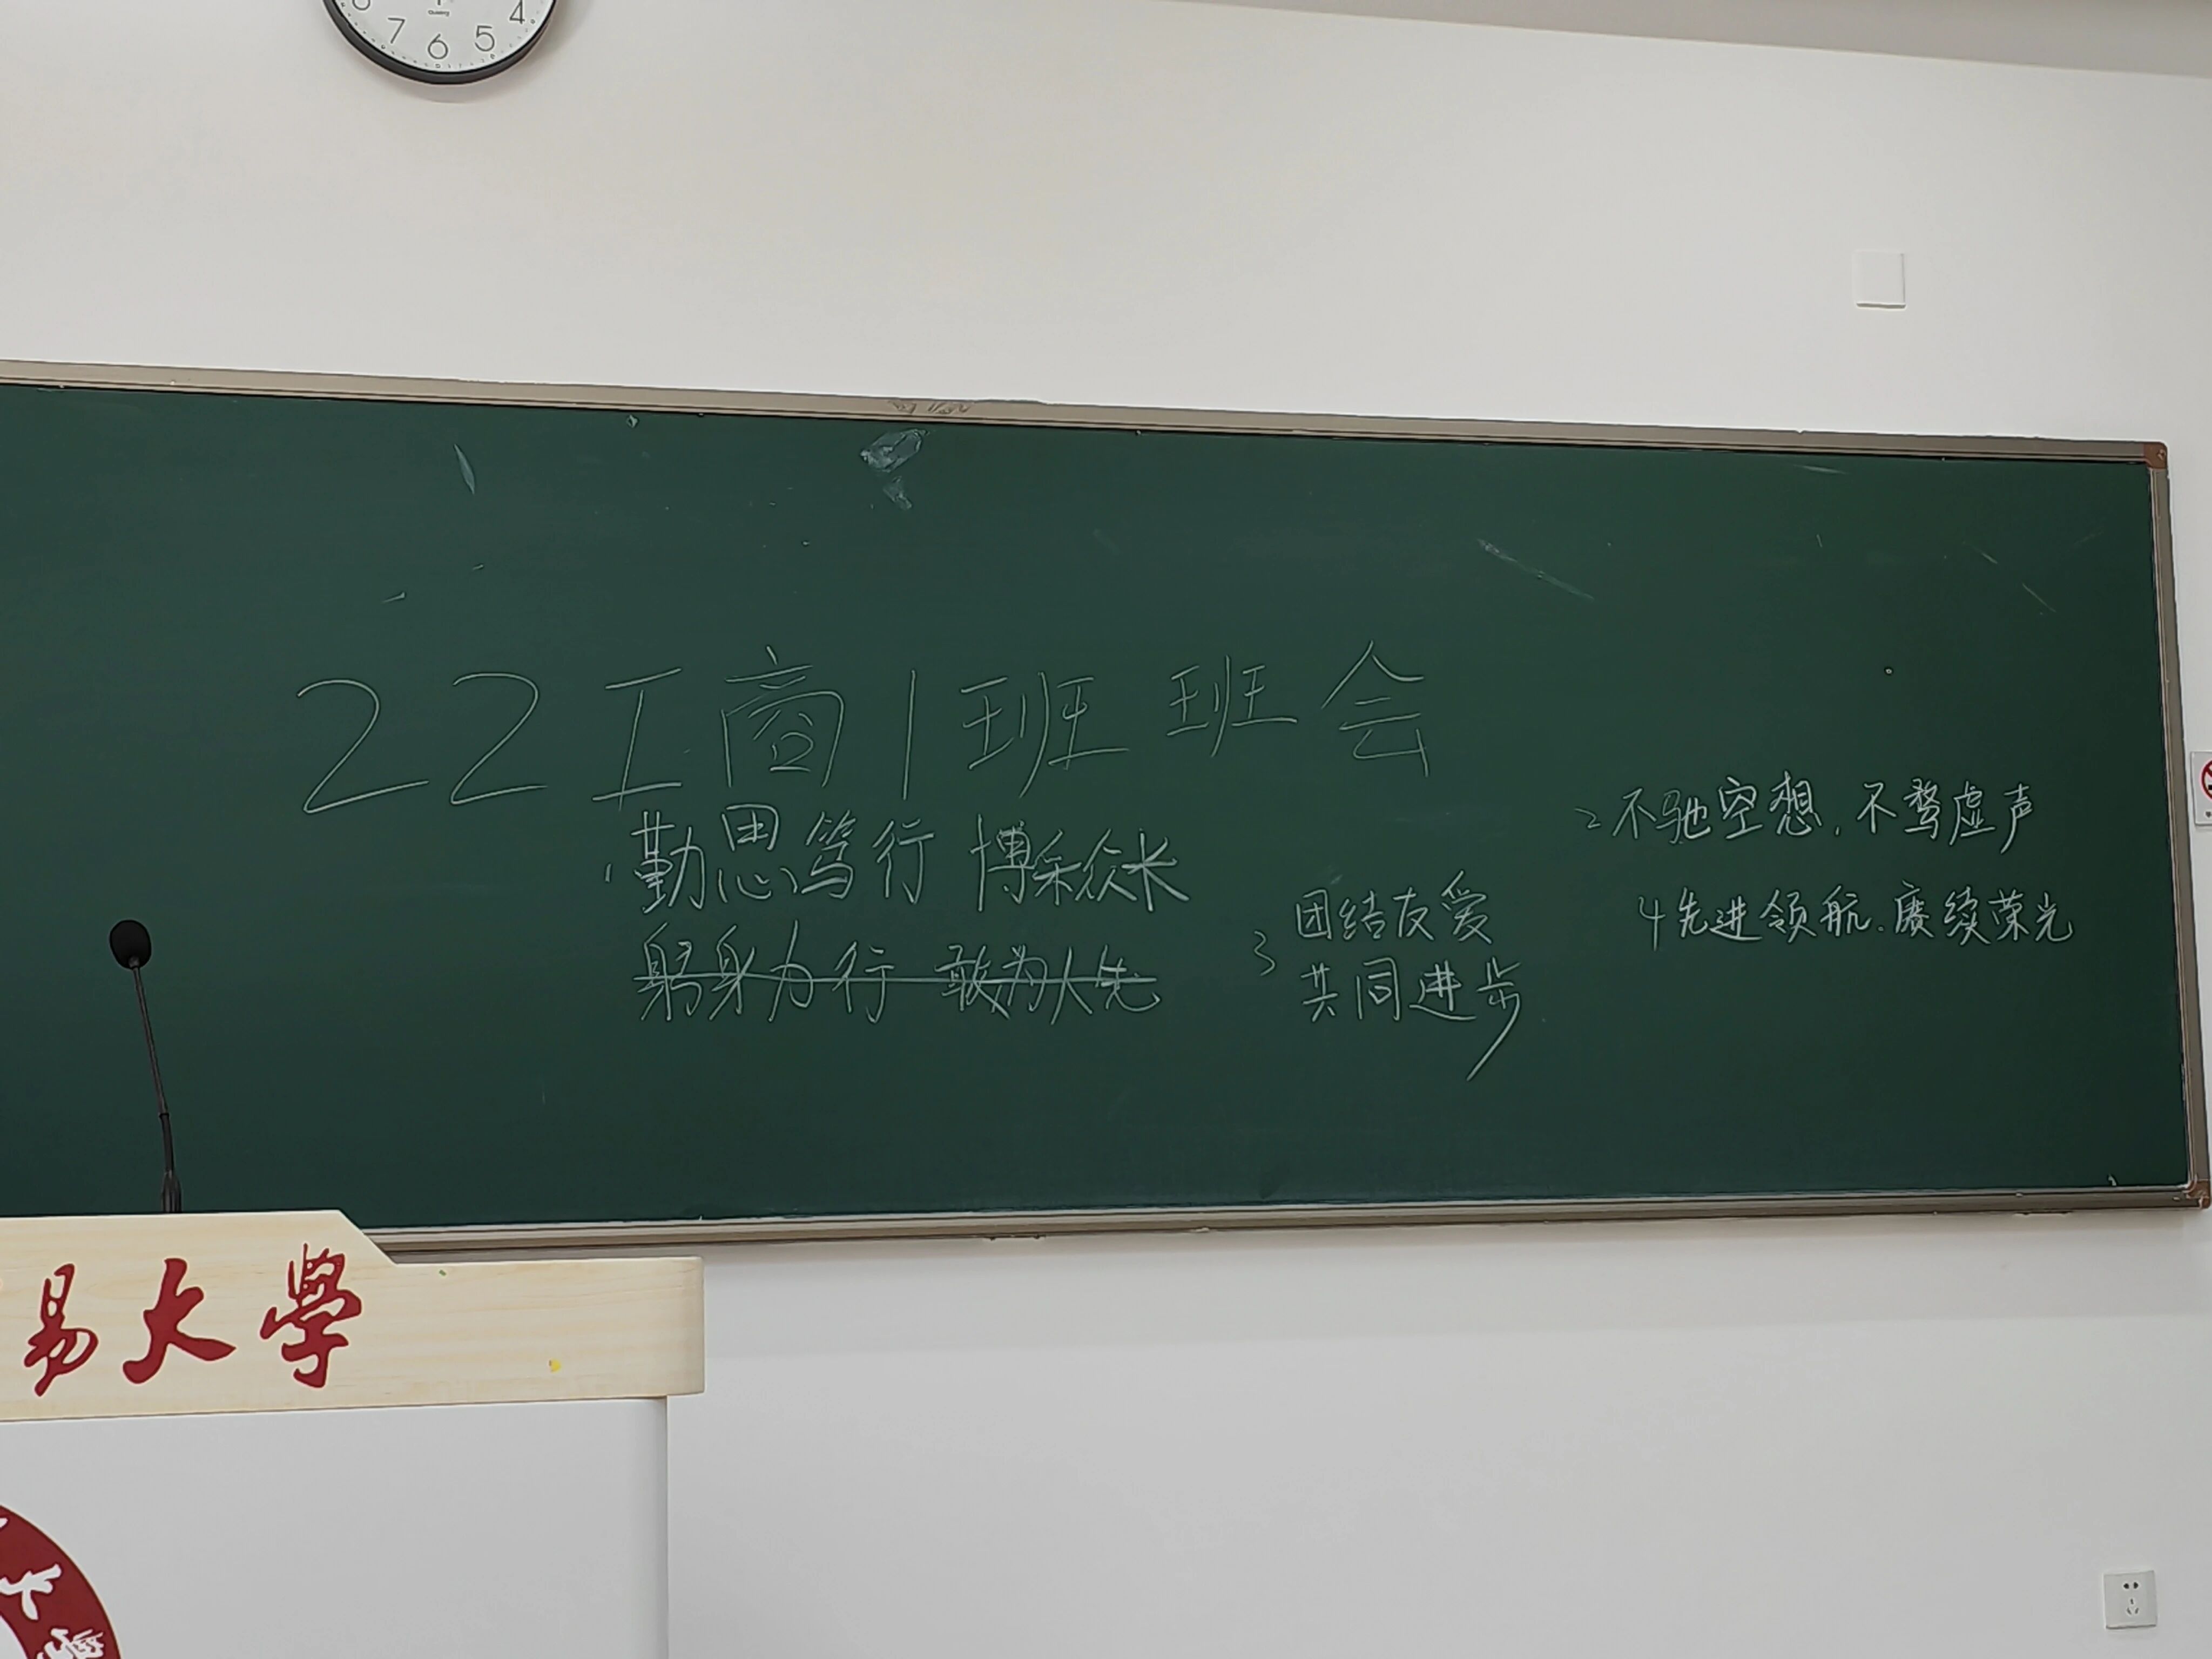 7 6 5 4
22工商1班班会
1 勤思笃行 博采众长
躬身力行 敢为人先
2 不驰空想，不骛虚声
3 团结友爱
共同进步
4 先进领航.赓续荣光
易大學